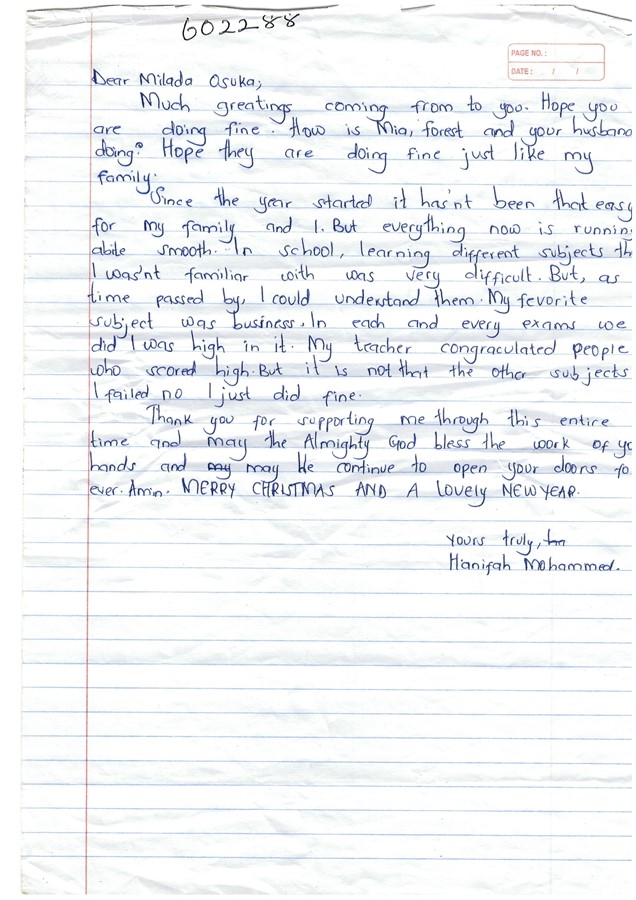 602288
PAGE NO.:
DATE: / /
Dear Milada Osuka,
Much greetings coming from to you. Hope you
are doing fine. How is Mia, forest and your husband
doing? Hope they are doing fine just like my
family.
Since the year started it has'nt been that easy
for my family and I. But everything now is runnin
abite smooth. In school, learning different subjects th
I was'nt familiar with was very difficult. But, as
time passed by, I could understand them. My feverite
subject was business. In each and every exams we
did I was high in it. My teacher congraculated people
who scored high. But it is not that the other subjects
I failed no I just did fine.
Thank you for supporting me through this entire
time and may the Almighty God bless the work of yo
hands and may may He continue to open your doors fo
ever. Amin. MERRY CHRISTMAS AND A lovely NEW YEAR.
Yours truly,
Hanifah Mohammed.